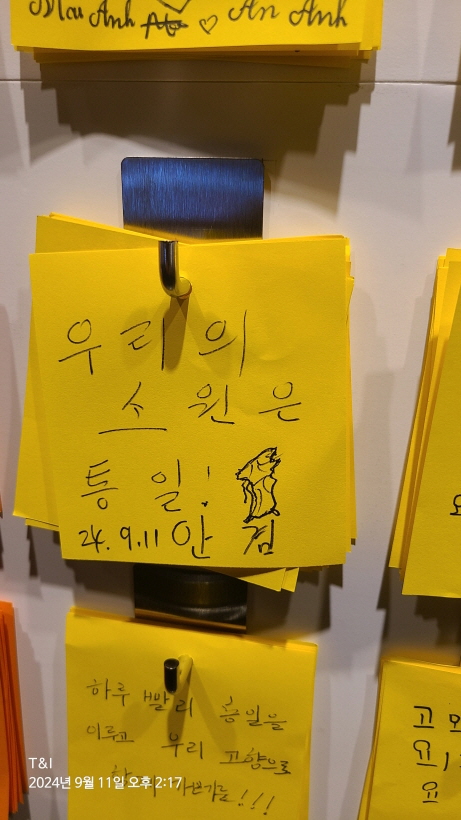 Mai Anh ♡ An Anh
우리의
소원은
통일!
24.9.11 안 겸
하루 빨리 통일을
이루고 우리 고향으로
고
요
요
T&I
2024년 9월 11일 오후 2:17